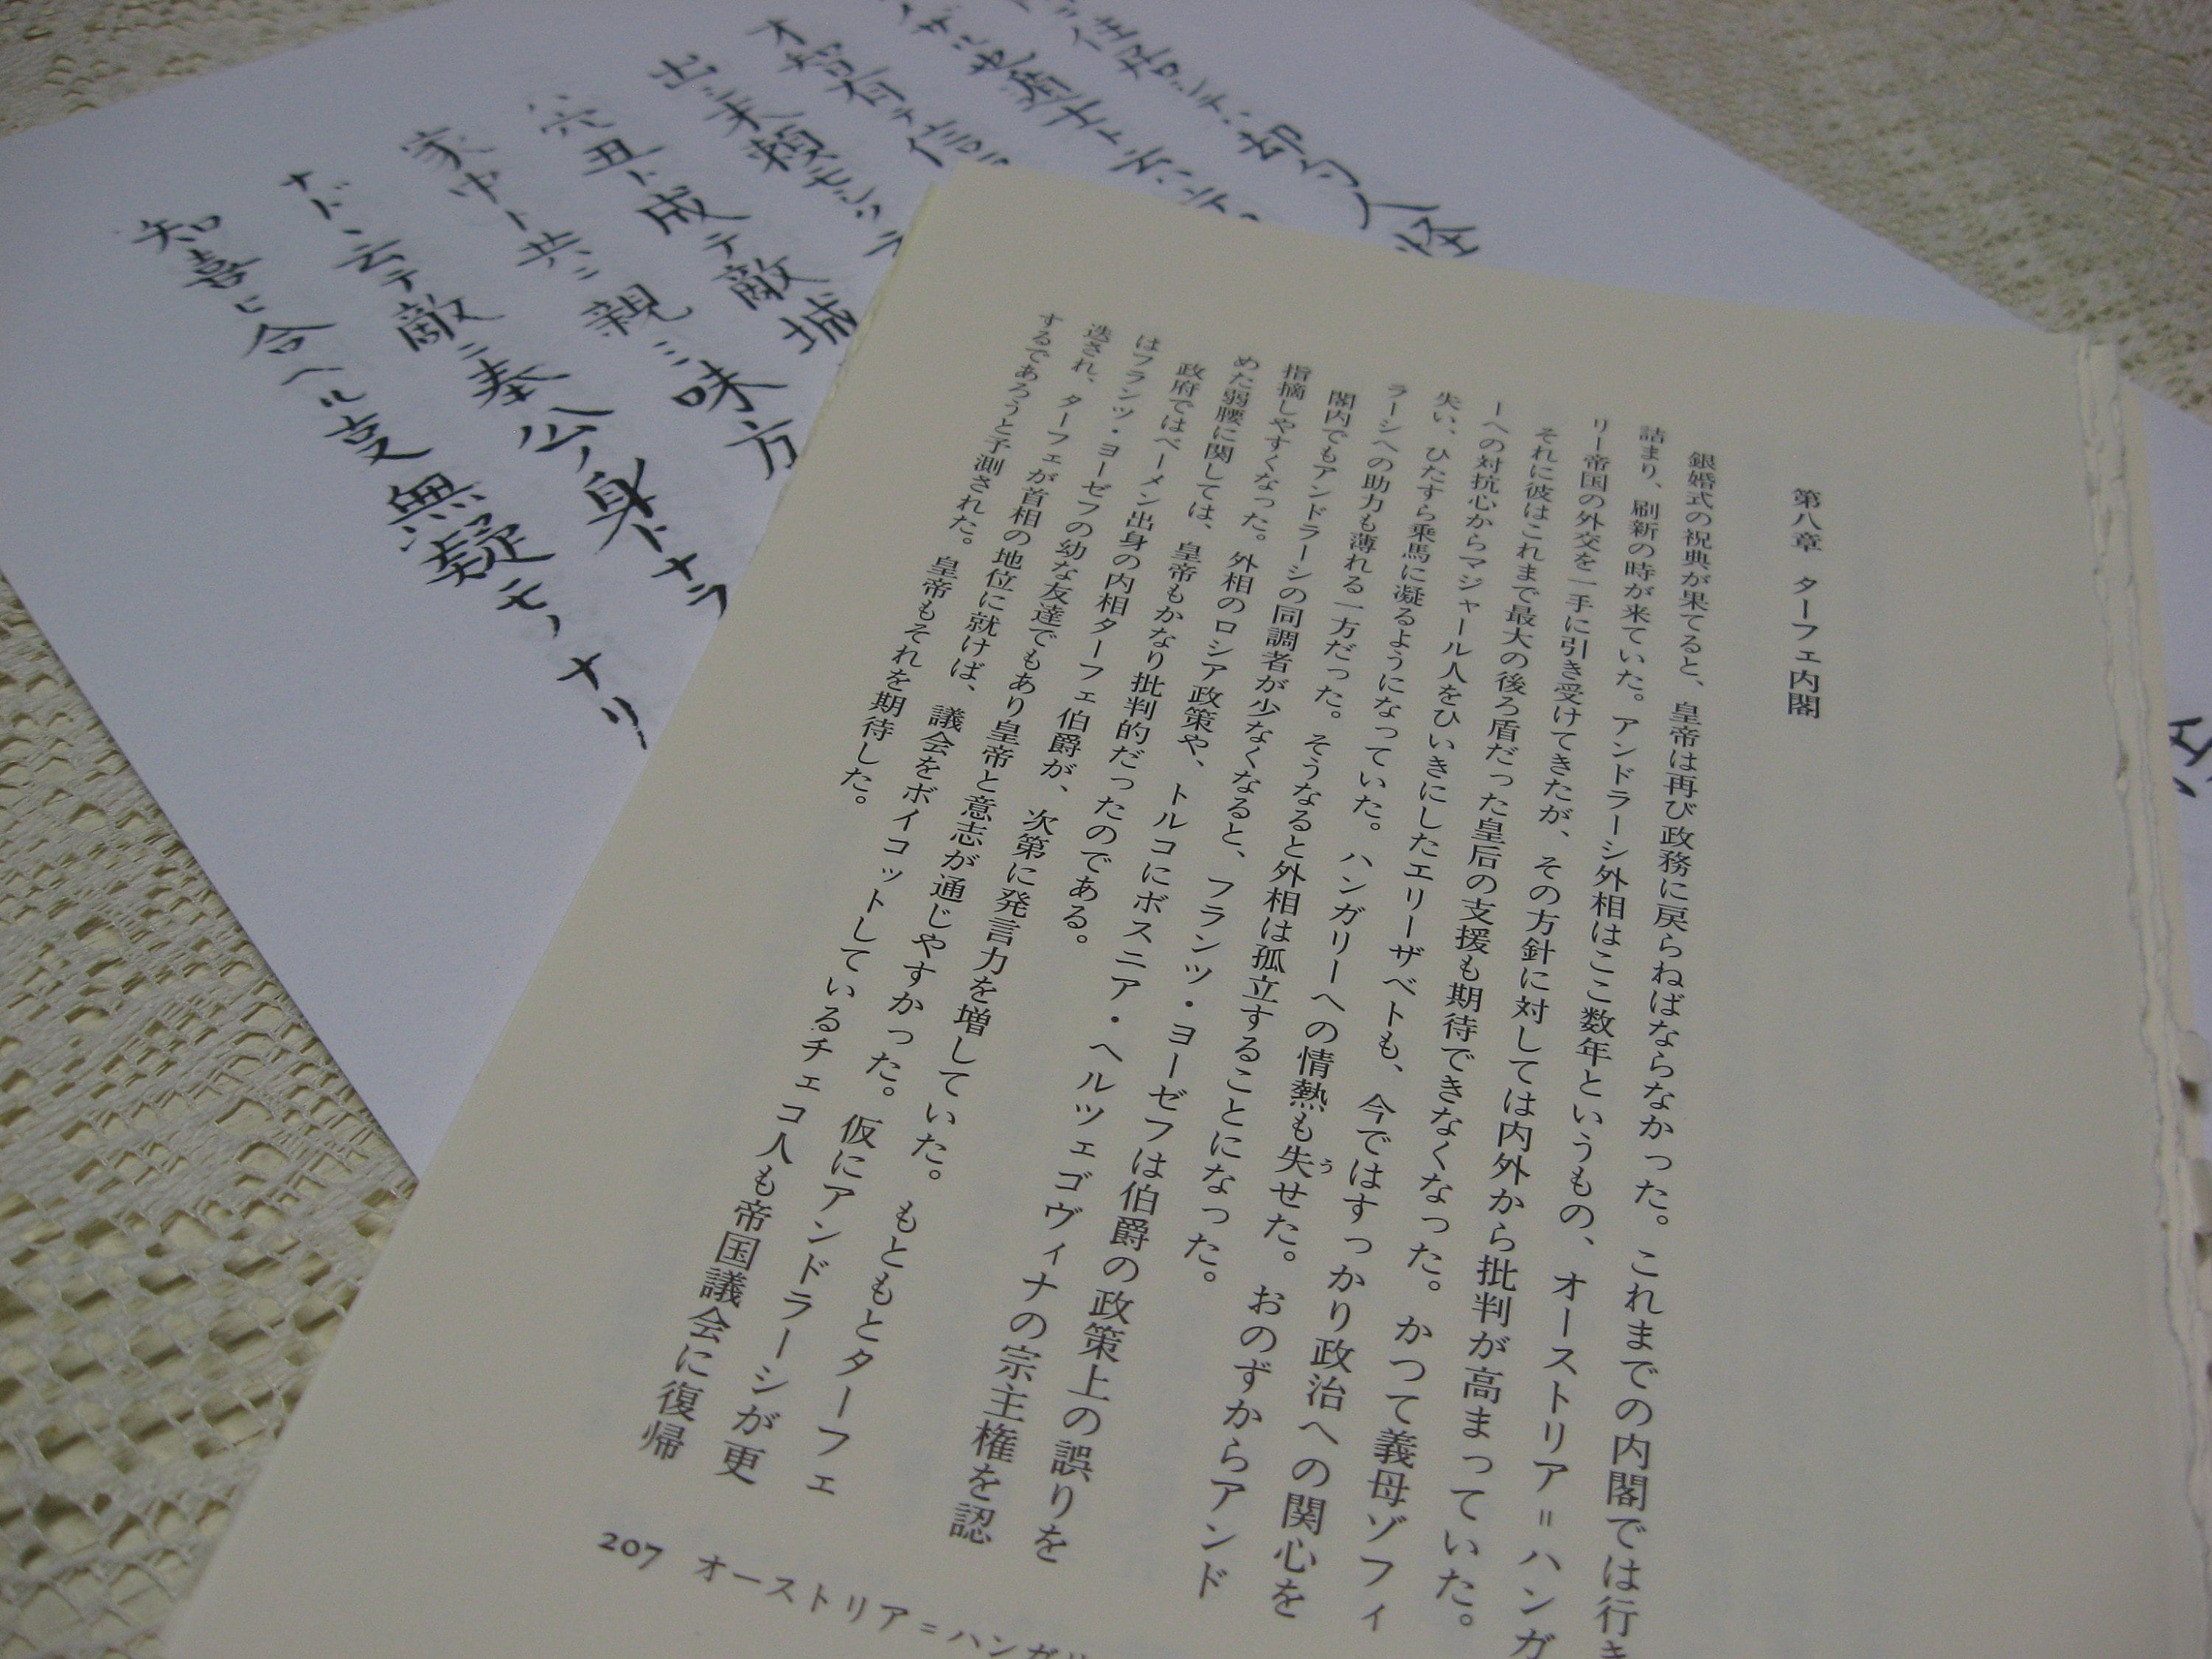 第八章 ターフェ内閣
銀婚式の祝典が果てると、皇帝は再び政務に戻らねばならなかった。これまでの内閣では行き
詰まり、刷新の時が来ていた。アンドラーシ外相はここ数年というもの、オーストリア=ハンガ
リー帝国の外交を一手に引き受けてきたが、その方針に対しては内外から批判が高まっていた。
それに彼はこれまで最大の後ろ盾だった皇后の支援も期待できなくなった。かつて義母ゾフィ
ーへの対抗心からマジャール人をひいきにしたエリーザベトも、今ではすっかり政治への関心を
失い、ひたすら乗馬に凝るようになっていた。ハンガリーへの情熱も失せた。おのずからアンド
う
ラーシへの助力も薄れる一方だった。そうなると外相は孤立することになった。
閣内でもアンドラーシの同調者が少なくなると、フランツ・ヨーゼフは伯爵の政策上の誤りを
指摘しやすくなった。外相のロシア政策や、トルコにボスニア・ヘルツェゴヴィナの宗主権を認
めた弱腰に関しては、皇帝もかなり批判的だったのである。
政府ではベーメン出身の内相ターフェ伯爵が、次第に発言力を増していた。もともとターフェ
はフランツ・ヨーゼフの幼な友達でもあり皇帝と意志が通じやすかった。仮にアンドラーシが更
迭され、ターフェが首相の地位に就けば、議会をボイコットしているチェコ人も帝国議会に復帰
するであろうと予測された。皇帝もそれを期待した。
207 オーストリア=ハンガリ
住居シテ、切々人怪
才智有テ信
出来頼モシクテ
穴丑ト成テ敵城
家中ト共ニ親ミ味方
ナド、云テ敵ニ奉公ノ身トナラ
知喜ニ合ヘル支無疑モノナリ